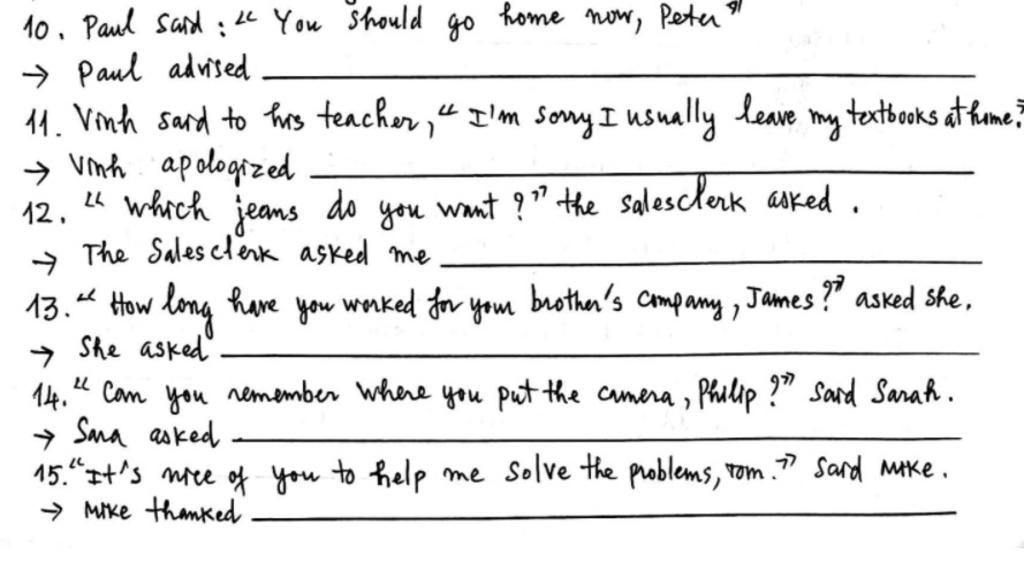 10. Paul said : " You should go home now, Peter"
→ Paul advised
11. Vinh said to his teacher, " I'm sorry I usually leave my textbooks at home."
→ Vinh apologized
12. " Which jeans do you want ?" the salesclerk asked .
→ The Salesclerk asked me
13. " How long have you worked for your brother's company, James ?" asked she.
→ She asked
14. " Can you remember where you put the camera, Philip ?" said Sarah.
→ Sara asked
15. "It's nice of you to help me solve the problems, Tom." said Mike.
→ Mike thanked